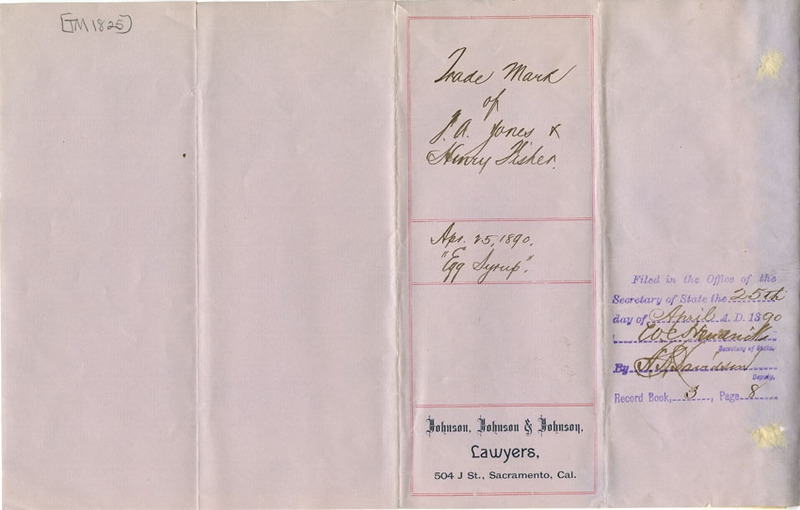 [TM1825]
Trade Mark
of
J. A. Jones &
Henry Fisher.
Apr. 25, 1890.
"Egg Syrup".
Johnson, Johnson & Johnson,
Lawyers,
504 J St., Sacramento, Cal.
Filed in the Office of the
Secretary of State the 25th
day of April A. D. 1890
Secretary of State.
By
Deputy.
Record Book, 3, Page 8